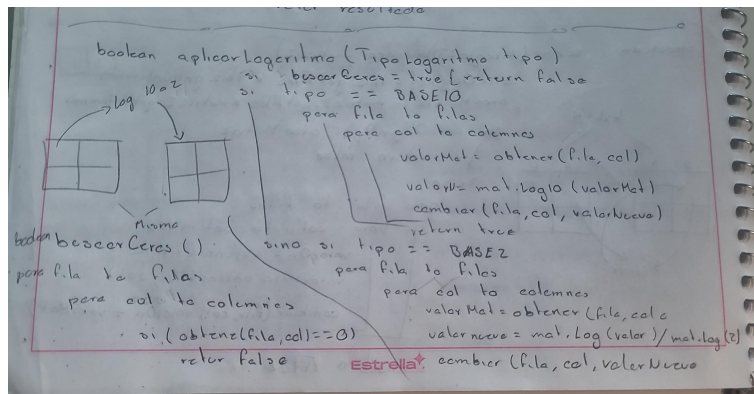 resultado
boolean aplicarLogaritmo (TipoLogaritmo tipo)
si buscarCeros = true [return false
si tipo == BASE10
para fila to filas
para col to columnas
valorMat = obtener (fila, col)
valorN= mat.Log10 (valorMat)
cambiar (fila, col, valorNuevo)
return true
sino si tipo == BASE2
para fila to filas
para col to columnas
valorMat = obtener (fila, col
valor nuevo = mat.Log (valor) / mat.log (2)
cambiar (fila, col, valorNuevo
Log 10 o 2
Misma
boolean buscarCeros ()
para fila to filas
para col to columnas
si (obtene(fila, col) == 0)
retur false
Estrella